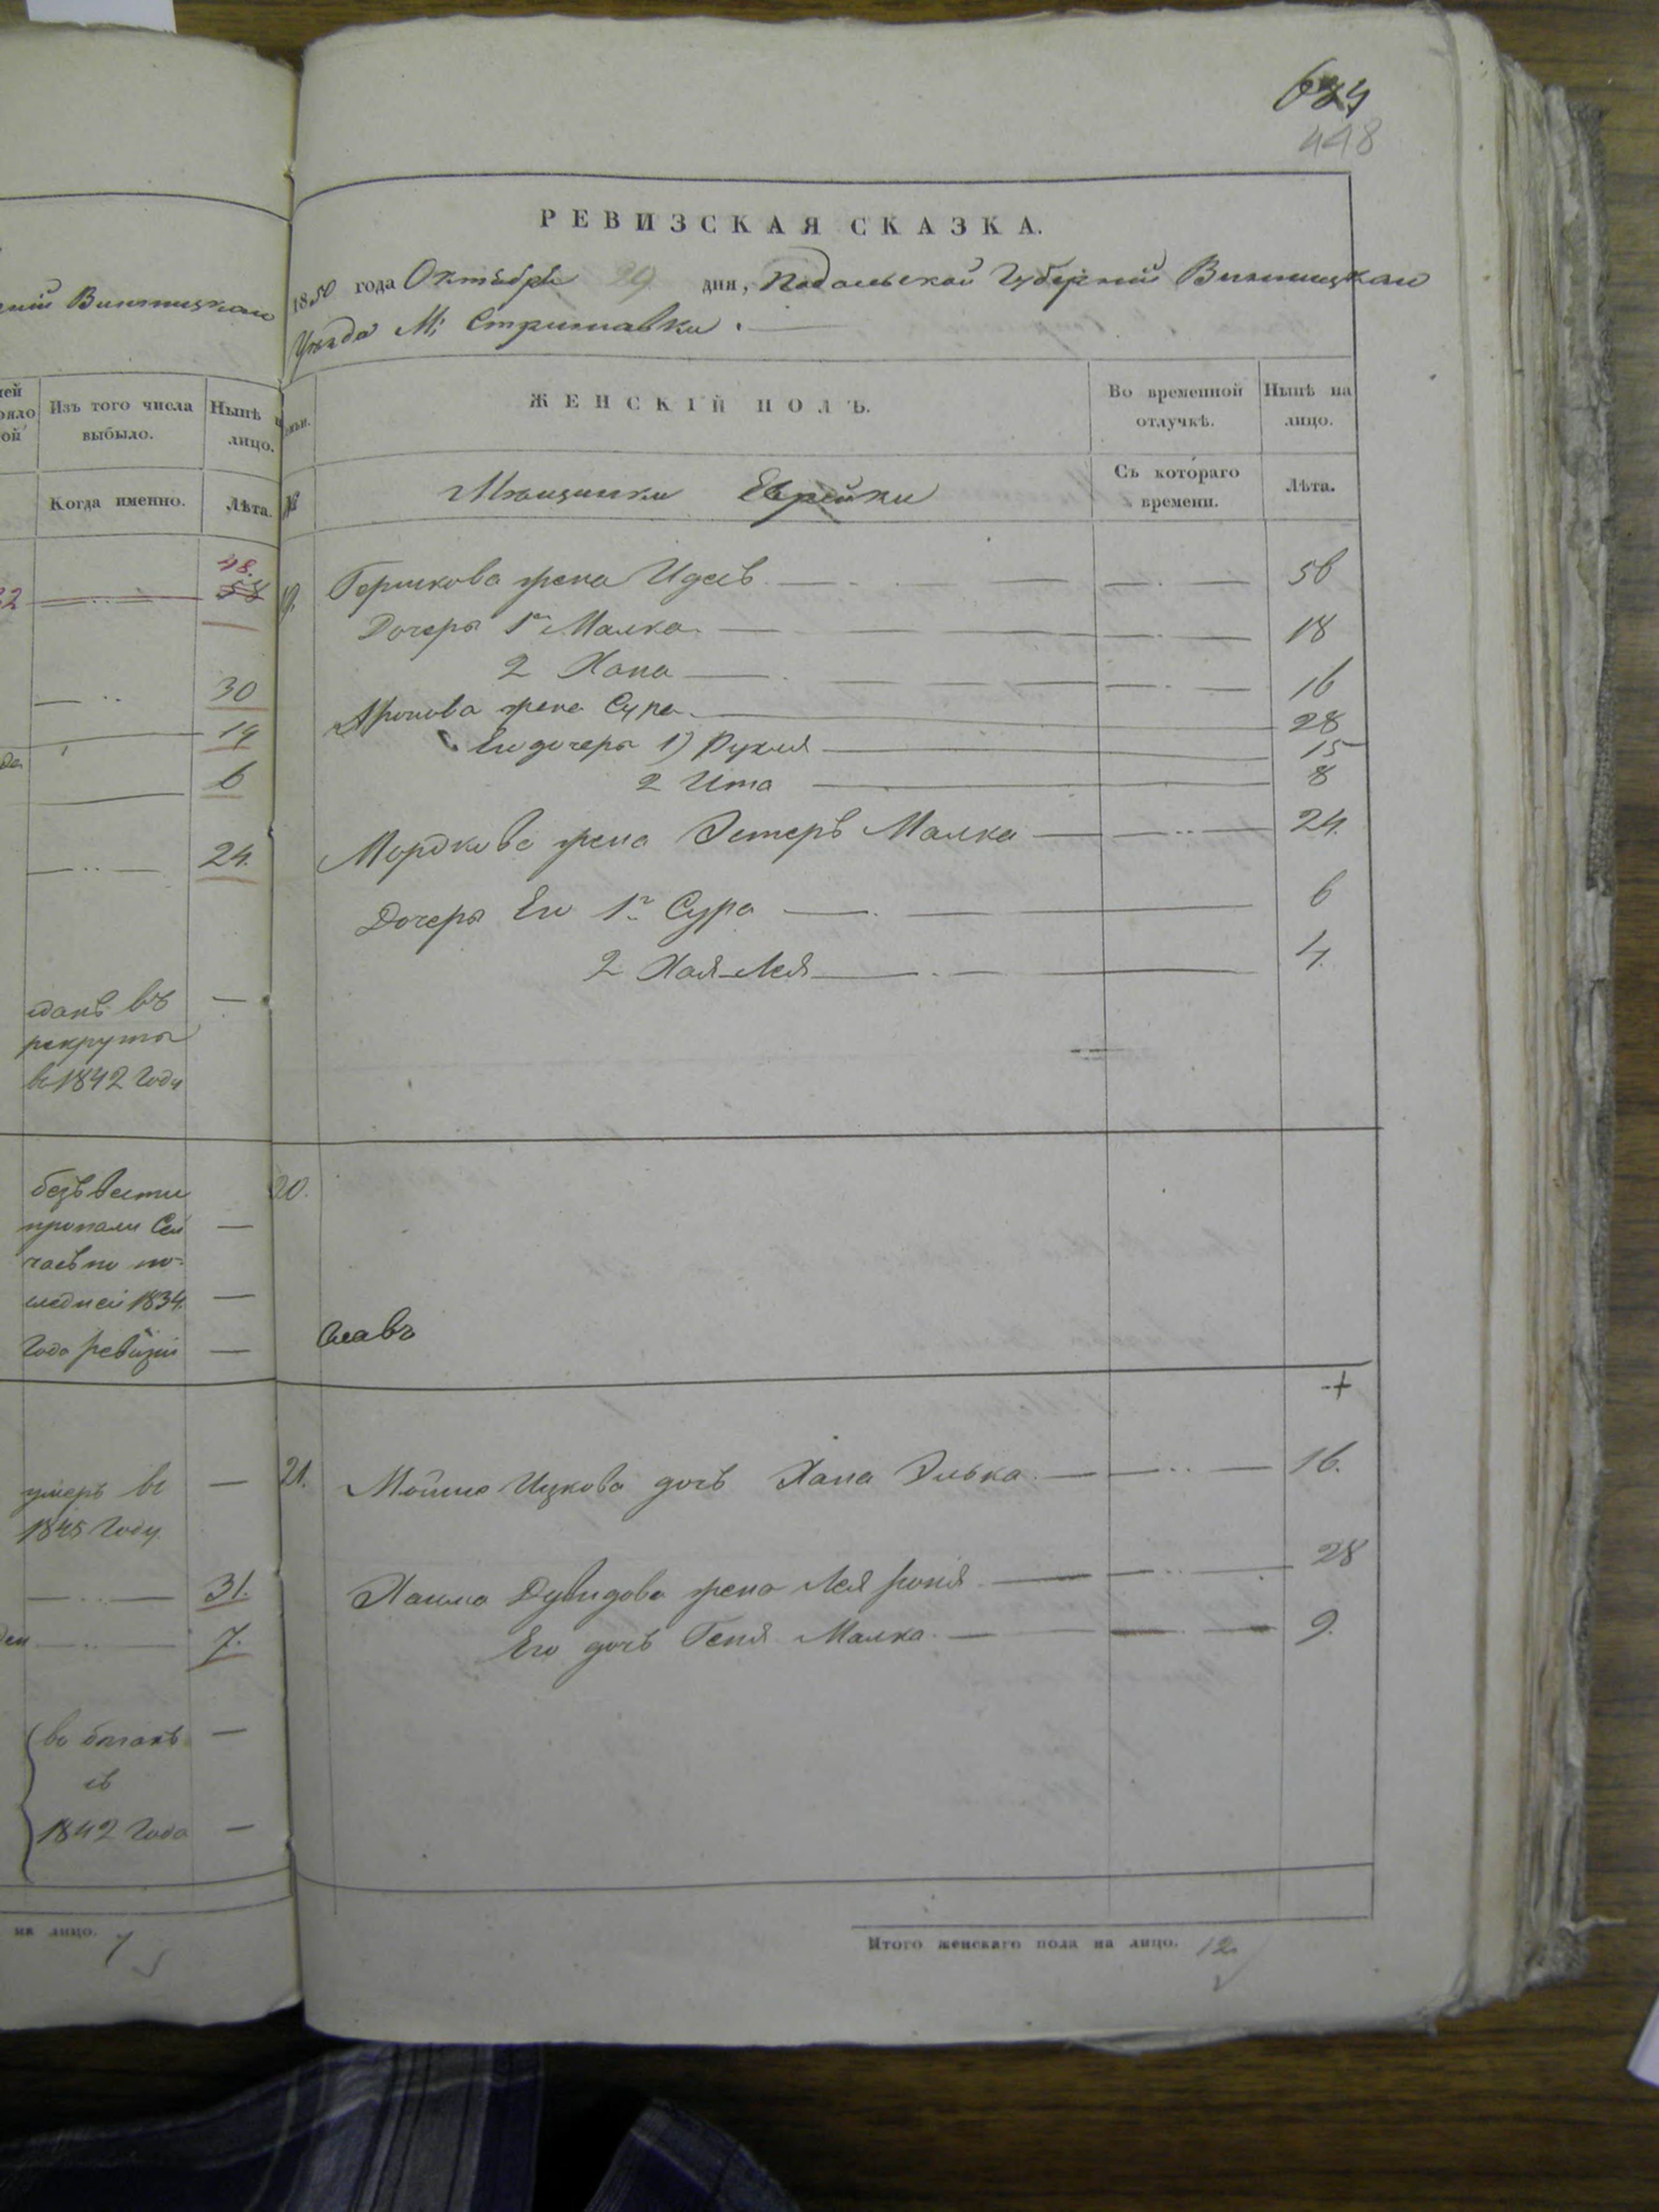 448
РЕВИЗСКАЯ СКАЗКА.
1850 года Октября 29 дня, Подольской Губернии Винницкаго
Уѣзда М. Стрижавки.
ній Винницкаго
Изъ того числа выбыло.
Нынѣ на лицо.
Когда именно.
Лѣта.
48.
58
30
19
6
24.
въ
рекруты
въ 1842 Году
безъ вести
пропали
1834.
Года ревизіи
умеръ въ
1845 Году
31.
7.
1842 Года
на лицо. 7
ЖЕНСКІЙ ПОЛЪ.
Во временной отлучкѣ.
Нынѣ на лицо.
№
Мѣщанки Еврейки
Съ котораго времени.
Лѣта.
19. Гершкова жена Идесъ 56
Дочеры 1я Малка 18
2 Хана 16
Аронова жена Сура 28
Его дочеры 1) Рухля 15
2 Ита 8
Мордкова жена Эстеръ Малка 24.
Дочеры Его 1я Сура 6
2 Хая Лея 4.
20.
21. Мошко Ицкова дочь Хана Элька 16.
Хаима Дувидова жена Лея 28
Его дочь Геня Малка 9.
Итого женскаго пола на лицо. 12